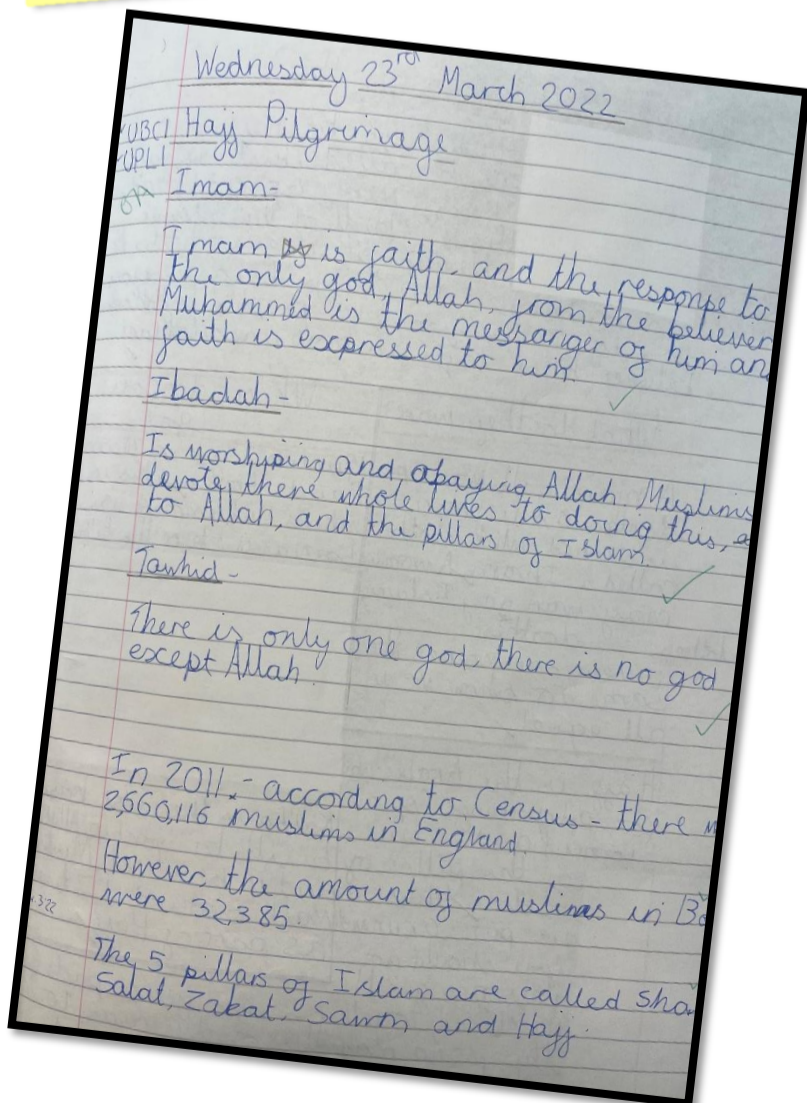 Wednesday 23rd March 2022
UBC1 Hajj Pilgrimage
UPL1
Imam-
Imam is faith, and the response to
the only god, Allah, from the believer
Muhammed is the messanger of him an
faith is expressed to him.
Ibadah-
Is worshiping and obaying Allah. Muslims
devote there whole lives to doing this, a
to Allah, and the pillars of Islam.
Tawhid-
There is only one god, there is no god
except Allah.
In 2011, - according to Census - there
2,660,116 muslims in England.
However, the amount of muslims in Bo
were 32,385.
The 5 pillars of Islam are called Sha
Salat, Zakat, Sawm and Hajj.